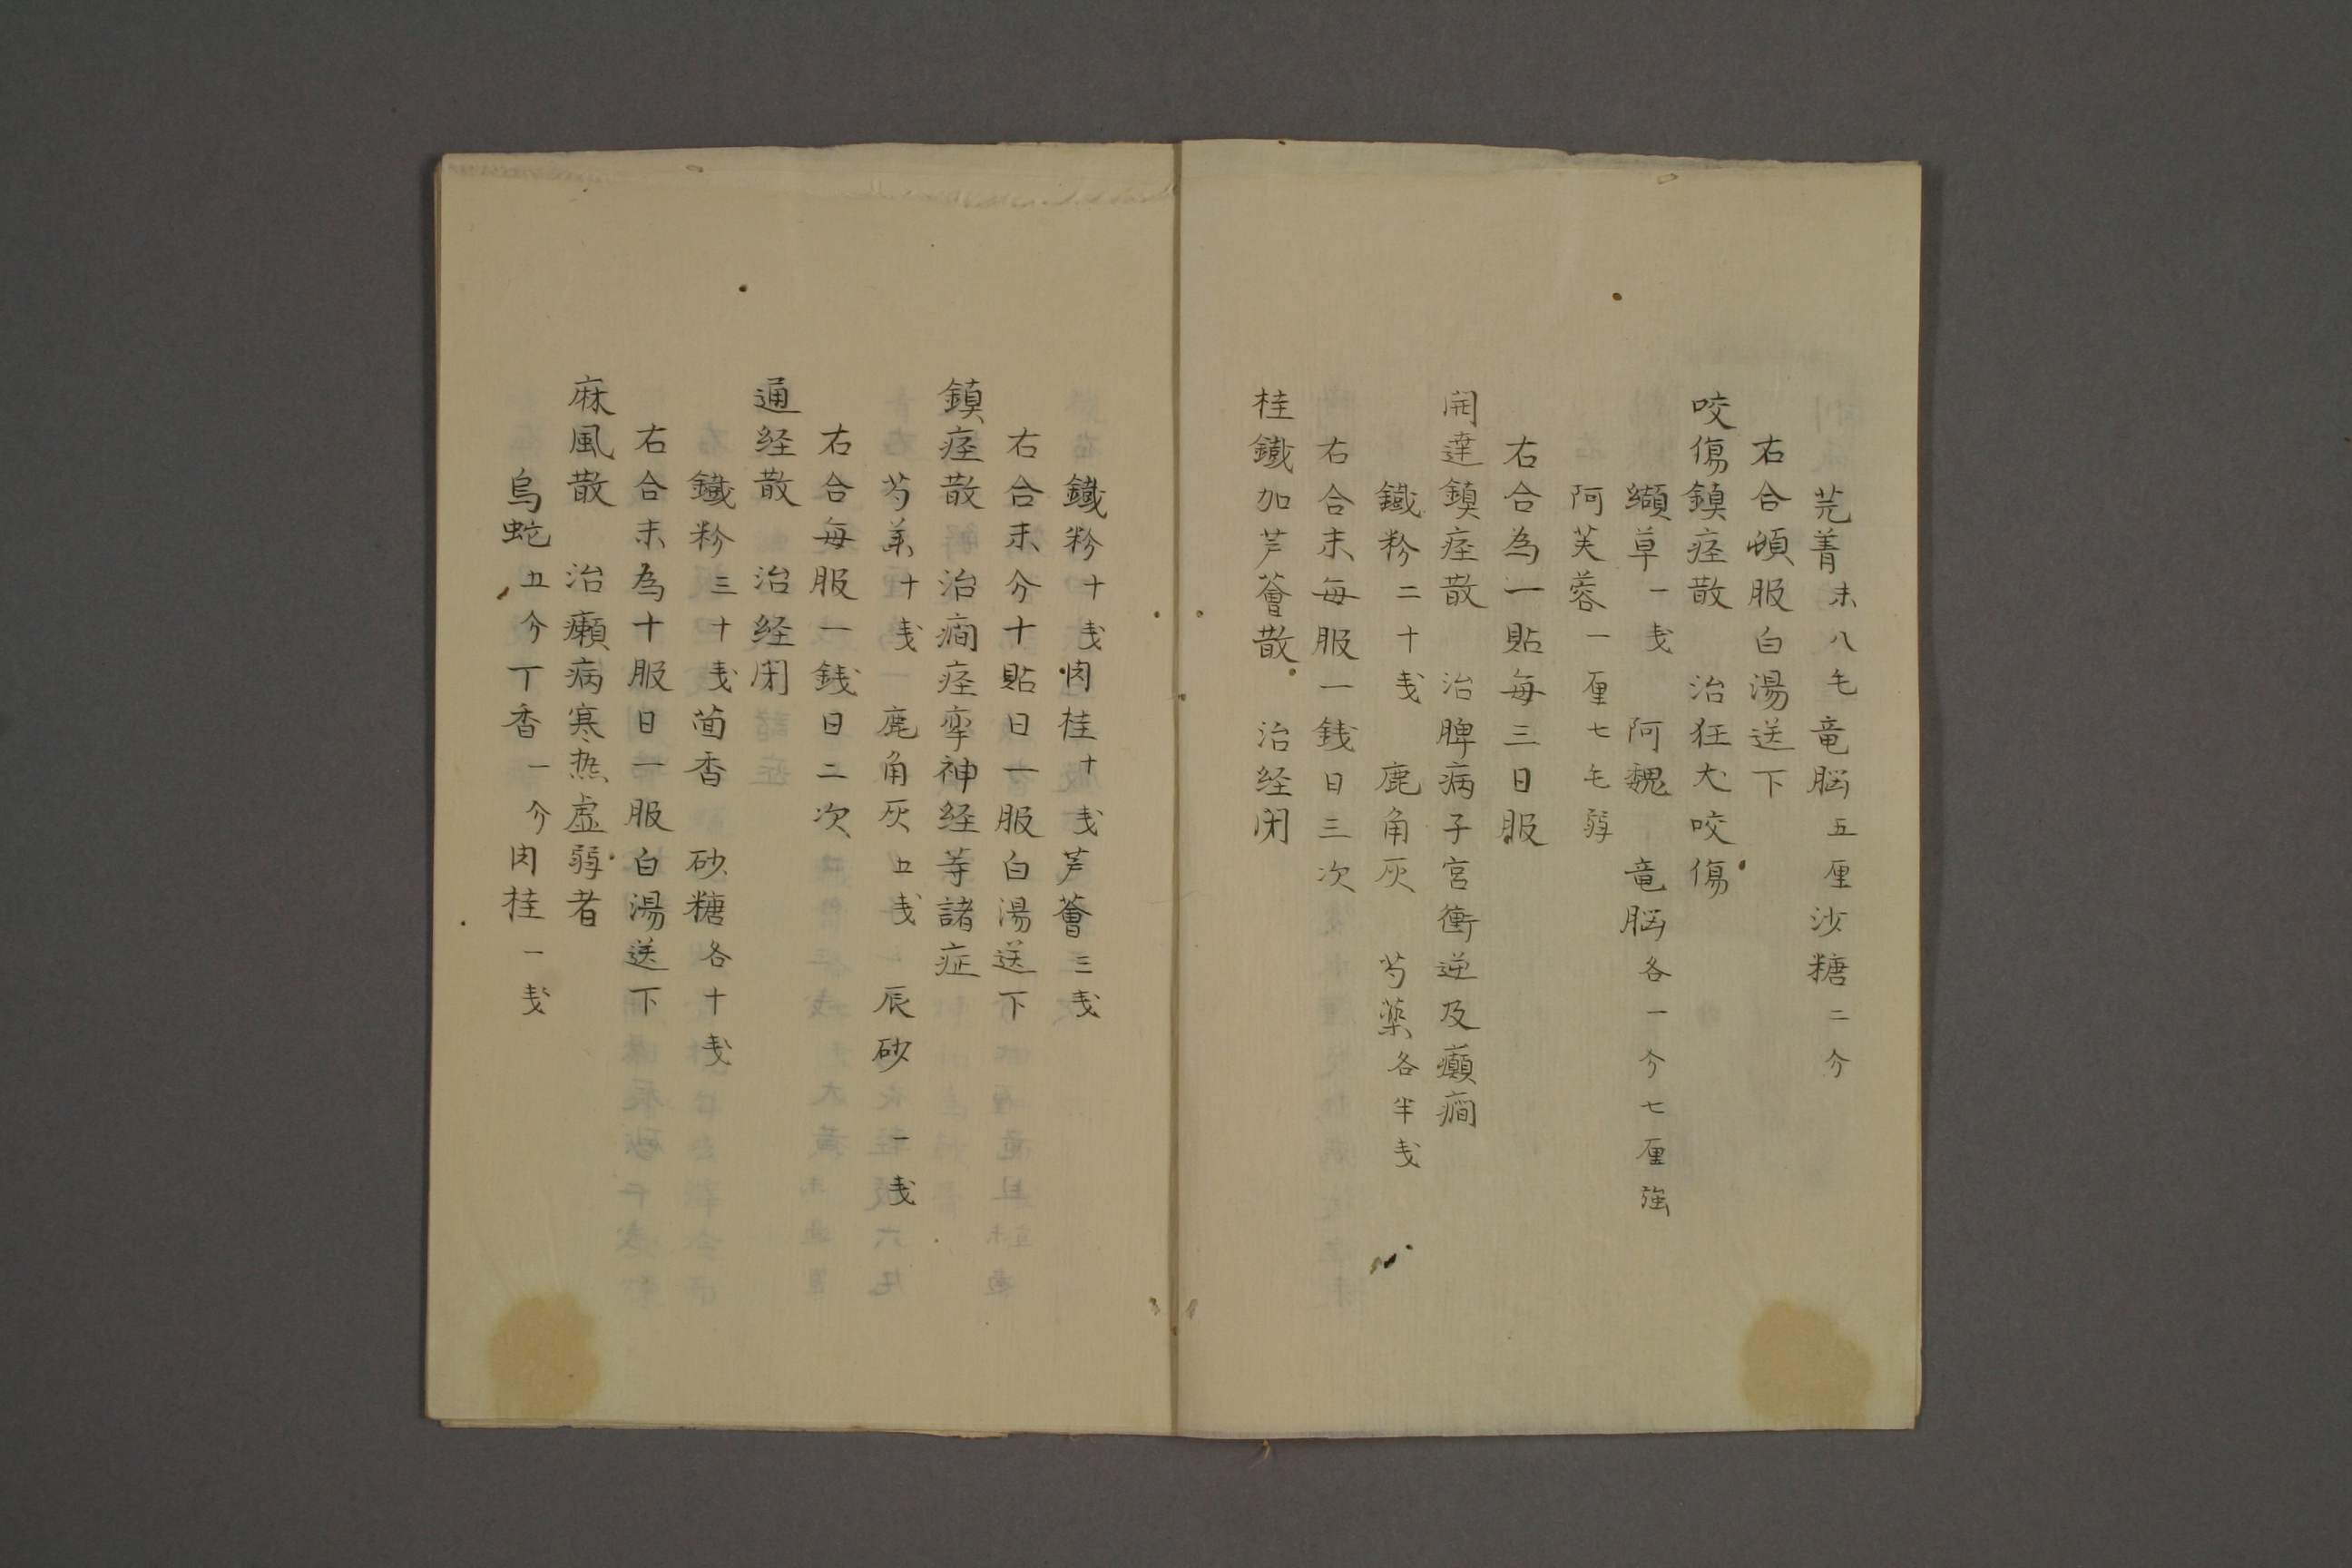 芫菁末八毛竜脳五厘沙糖二分
右合頓服白湯送下
咬傷鎮痙散　治狂犬咬傷
纈草一戔　阿魏　竜脳各一分七厘強
阿芙蓉一厘七毛弱
右合為一貼毎三日服
開達鎮痙散　治脾病子宮衝逆及癲癇
鐵粉二十戔　鹿角灰　芍薬各半戔
右合末毎服一銭日三次
桂鐵加芦薈散　治経閉
鐵粉十戔肉桂十戔芦薈三戔
右合末分十貼日一服白湯送下
鎮痙散　治癇痙攣神経等諸症
芍薬十戔　鹿角灰五戔　辰砂一戔
右合毎服一銭日二次
通経散　治経閉
鐵粉三十戔茴香　砂糖各十戔
右合末為十服日一服白湯送下
麻風散　治癩病寒热虚弱者
烏蛇五分丁香一分肉桂一戔